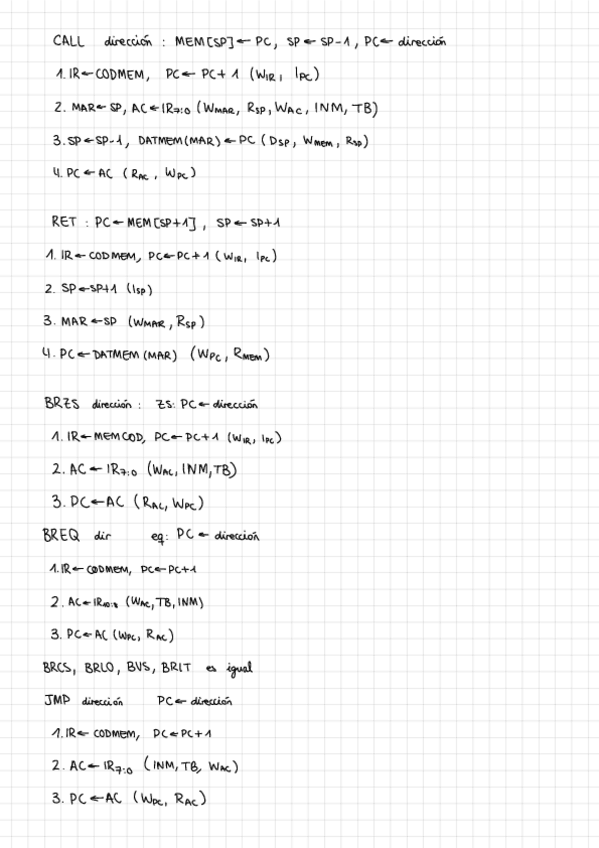 CALL dirección : MEM[SP] ← PC, SP ← SP-1, PC ← dirección
1. IR ← CODMEM, PC ← PC + 1 (WIR, IPC)
2. MAR ← SP, AC ← IR7:0 (WMAR, RSP, WAC, INM, TB)
3. SP ← SP-1, DATMEM(MAR) ← PC (DSP, Wmem, RSP)
4. PC ← AC (RAC, WPC)
RET : PC ← MEM[SP+1], SP ← SP+1
1. IR ← CODMEM, PC ← PC + 1 (WIR, IPC)
2. SP ← SP+1 (ISP)
3. MAR ← SP (WMAR, RSP)
4. PC ← DATMEM (MAR) (WPC, RMEM)
BRZS dirección : ZS: PC ← dirección
1. IR ← MEMCOD, PC ← PC + 1 (WIR, IPC)
2. AC ← IR7:0 (WAC, INM, TB)
3. PC ← AC (RAC, WPC)
BREQ dir eq: PC ← dirección
1. IR ← CODMEM, PC ← PC+1
2. AC ← (WAC, TB, INM)
3. PC ← AC (WPC, RAC)
BRCS, BRLO, BVS, BRIT es igual
JMP dirección PC ← dirección
1. IR ← CODMEM, PC ← PC+1
2. AC ← IR7:0 (INM, TB, WAC)
3. PC ← AC (WPC, RAC)